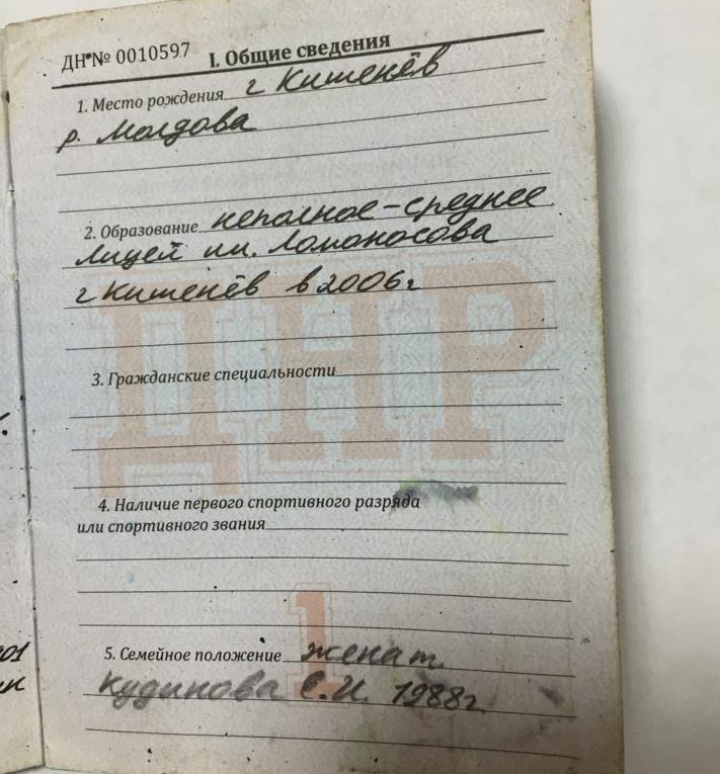 ДН № 0010597
I. Общие сведения
1. Место рождения г Кишенёв
р. Молдова
2. Образование неполное-среднее
Лицей им. Ломоносова
г Кишенёв в 2006г
ДНР
3. Гражданские специальности
4. Наличие первого спортивного разряда
или спортивного звания
1
5. Семейное положение женат
Кудинова С.И. 1988г